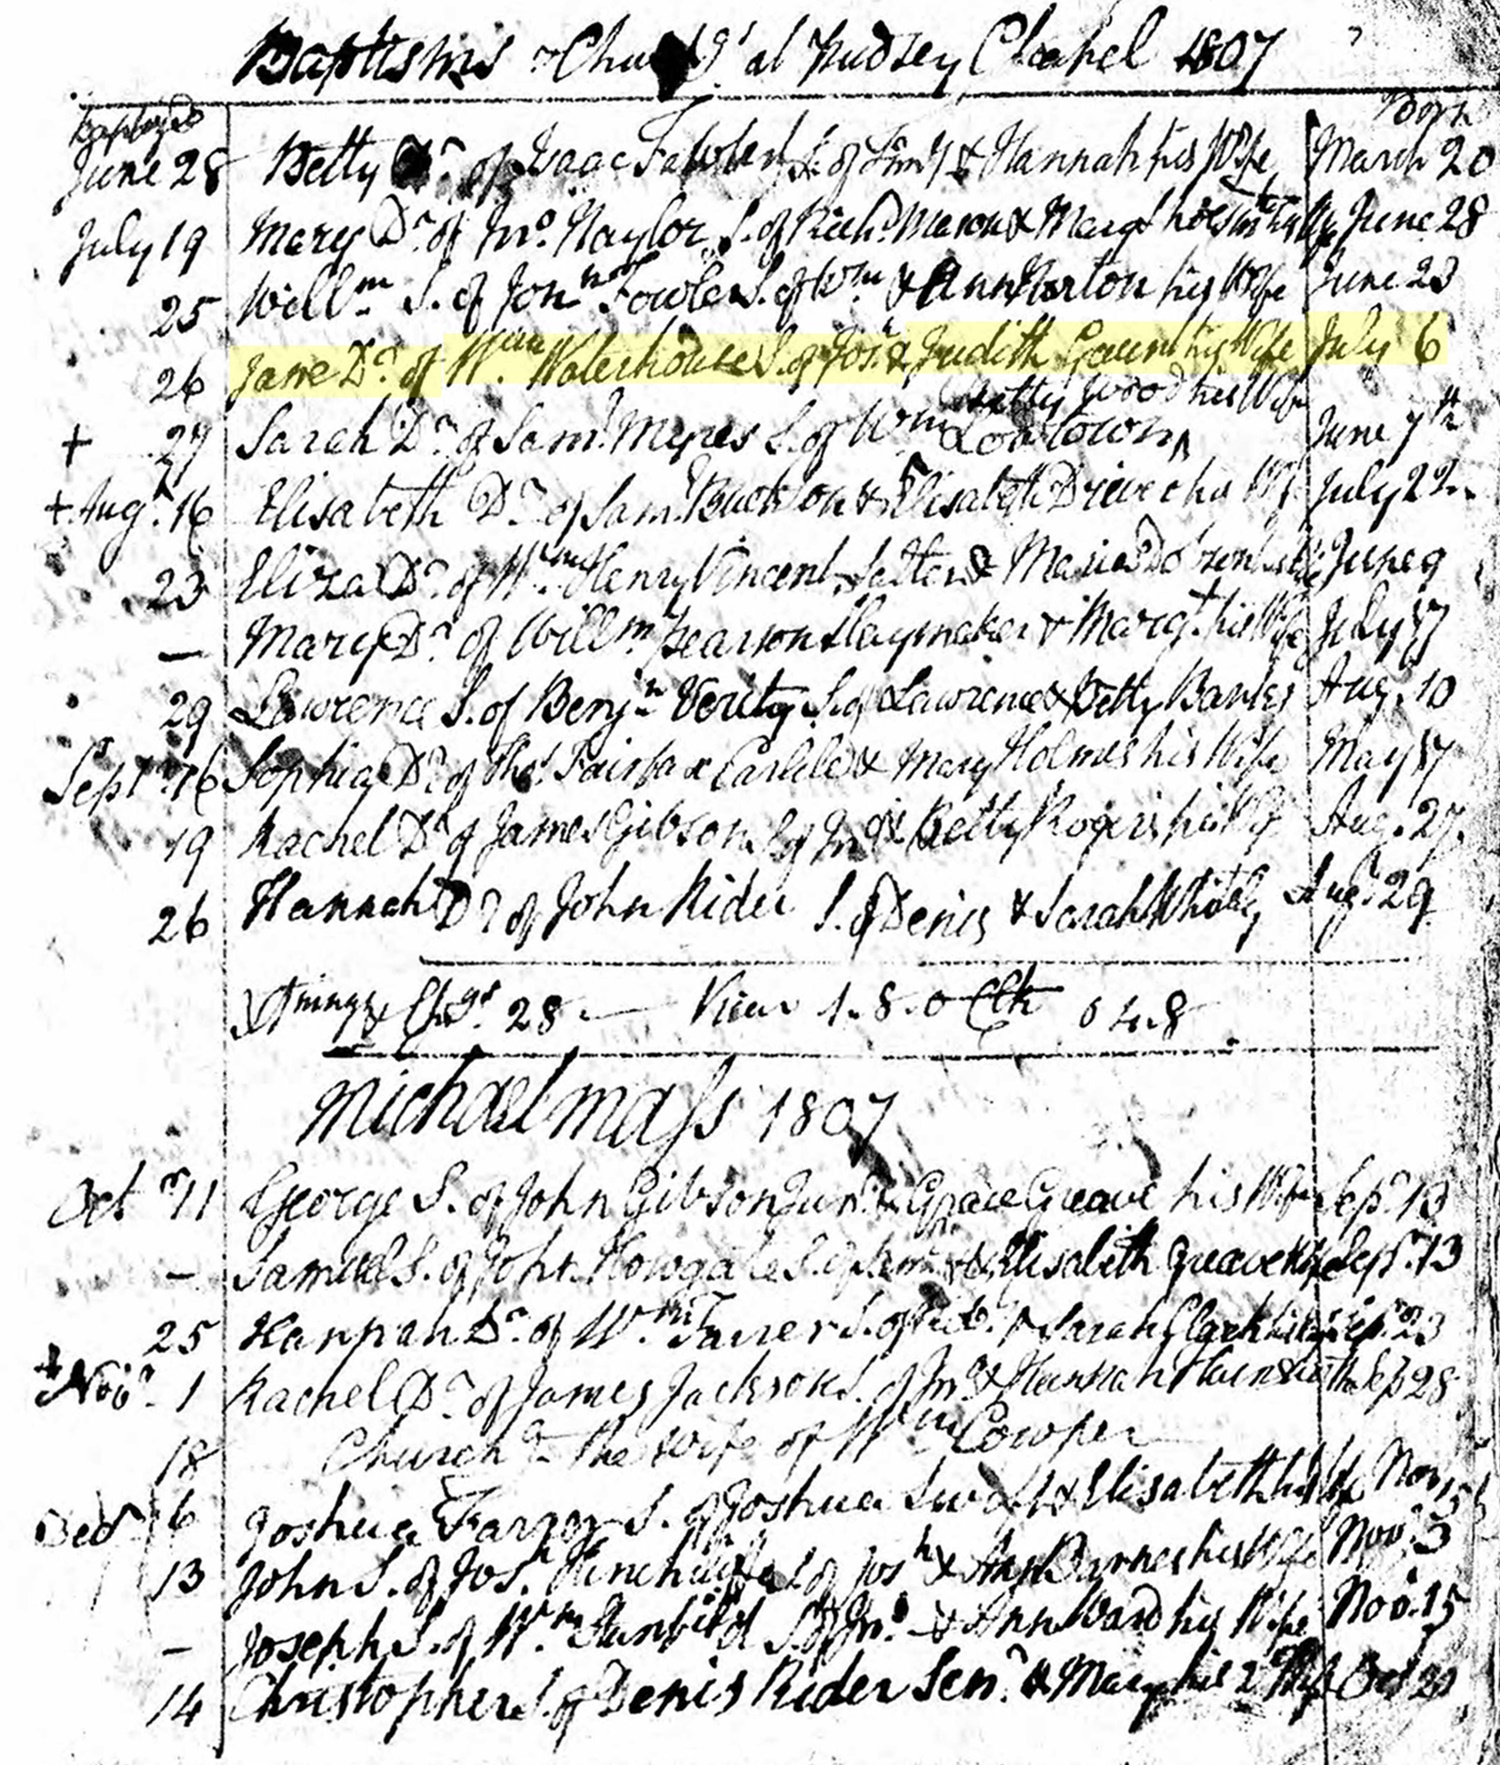 Baptisms & Chu g.s at Pudsey Chapel 1807
Baptized Born
June 28 Betty Dr. of Isaac Fawler S. of & Hannah his Wife March 20
July 19 Mary Dr. of Jno. Naylor S. of Richd. & Margt June 28
25 Willm S. of Jonn Fowler S. of Wm & Ann Norton his Wife June 23
26 Jane Dr. of Wm Waterhouse S. of Jos. & Judith Gaunt his Wife July 6
Betty Wood his Wife
+ 27 Sarah Dr. of Saml. Myres S. of Wm Lowtown June 7th
+ Augt. 16 Elisabeth Dr. of Saml. & Elisabeth his July 22
23 Eliza Dr. of Wm Henry Vincent Salter & Maria June 9
— Mary Dr. of Willm Pearson Slaymaker & Margt. his Wife July 17
29 Lawrence S. of Benjn Verity S. of Lawrence & Betty Banks Aug. 10
Septr. 16 Sophia Dr. of Thos. Fairfax Carlile & Mary Holmes his Wife May 17
19 Rachel Dr. of James Gibson S. of Jno. & Betty Rogers his Wife Aug. 27
26 Hannah Dr. of John Rider S. of Denis & Sarah Whitely Aug. 29
28 — 1.8.0 Clk 0 4.8
Michaelmass 1807
Octr 11 George S. of John Gibson Junr. & Grace Greave his Wife Sep. 13
— Samuel S. of John Howgate S. of & Elisabeth Greave Sept. 13
25 Hannah Dr. of Wm Farrer S. of & Sarah Clark his Sep. 23
+ Novr. 1 Rachel Dr. of James Jackson S. of Jno. & Hannah Sep 28
18 Churchd the Wife of Wm Cowper
Decr 6 Joshua Farrer S. of Joshua & Elisabeth his Wife Nov.
13 John S. of Jos. Hinchliffe S. of Josh & Ann Barnes his Wife Nov. 3
— Joseph S. of Wm S. of Jno. & Ann Ward his Wife Nov. 15
14 Christopher S. of Denis Rider Senr. & Mary his 2 Wife Oct